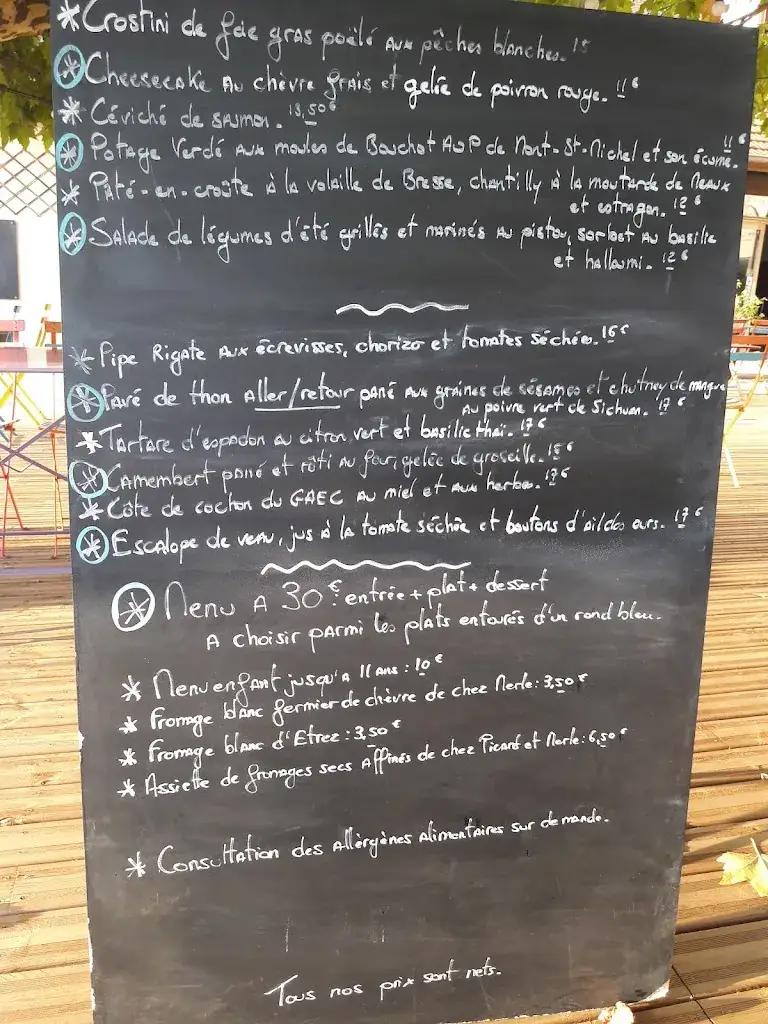 * Crostini de foie gras poëlé aux pêches blanches. 15
* Cheesecake au chèvre frais et gelée de poivron rouge. 11€
* Céviché de saumon. 13,50€
* Potage Verdé aux moules de Bouchot AOP de Mont-St-Michel et son écume. 11€
* Pâté-en-croute à la volaille de Bresse, chantilly à la moutarde de Meaux
et estragon. 12€
* Salade de légumes d'été grillés et marinés au pistou, sorbet au basilic
et halloumi. 12€
* Pipe Rigate aux écrevisses, chorizo et tomates séchées. 16€
* Pavé de thon Aller/retour pané aux graines de sésames et chutney de mangue
au poivre vert de Sichuan. 17€
* Tartare d'espadon au citron vert et basilic thaï. 17€
* Camembert pané et rôti au four, gelée de groseille. 15€
* Côte de cochon du GAEC au miel et aux herbes. 17€
* Escalope de veau, jus à la tomate séchée et boutons d'ail des ours. 17€
* Menu A 30€: entrée + plat + dessert
A choisir parmi les plats entourés d'un rond bleu.
* Menu enfant jusqu'à 11 ans : 10€
* Fromage blanc fermier de chèvre de chez Merle : 3,50€
* Fromage blanc d'Etrez : 3,50€
* Assiette de fromages secs Affinés de chez Picard et Merle : 6,50€
* Consultation des Allèrgènes Alimentaires sur demande.
Tous nos prix sont nets.